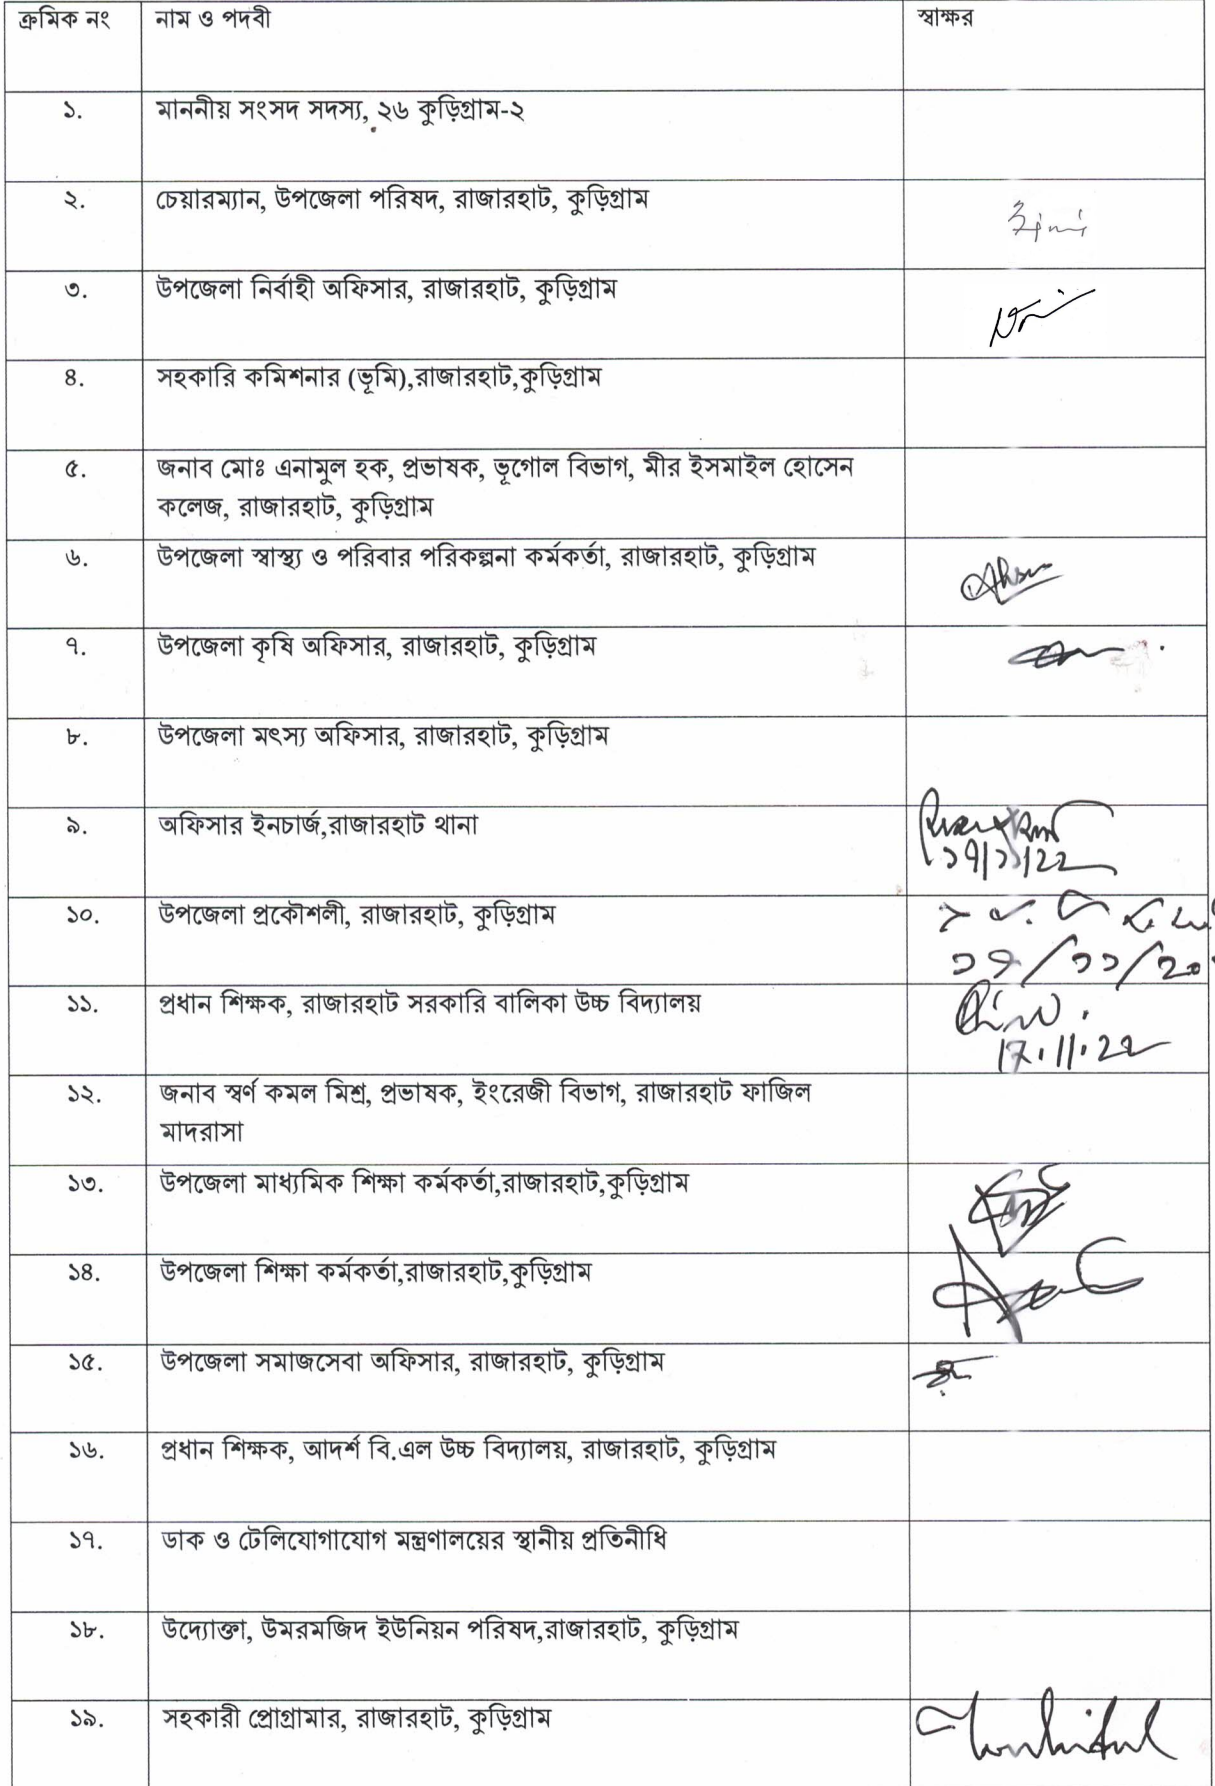 ক্রমিক নং নাম ও পদবী স্বাক্ষর
১. মাননীয় সংসদ সদস্য, ২৬ কুড়িগ্রাম-২
২. চেয়ারম্যান, উপজেলা পরিষদ, রাজারহাট, কুড়িগ্রাম
৩. উপজেলা নির্বাহী অফিসার, রাজারহাট, কুড়িগ্রাম
৪. সহকারি কমিশনার (ভূমি),রাজারহাট,কুড়িগ্রাম
৫. জনাব মোঃ এনামুল হক, প্রভাষক, ভূগোল বিভাগ, মীর ইসমাইল হোসেন
কলেজ, রাজারহাট, কুড়িগ্রাম
৬. উপজেলা স্বাস্থ্য ও পরিবার পরিকল্পনা কর্মকর্তা, রাজারহাট, কুড়িগ্রাম
৭. উপজেলা কৃষি অফিসার, রাজারহাট, কুড়িগ্রাম
৮. উপজেলা মৎস্য অফিসার, রাজারহাট, কুড়িগ্রাম
৯. অফিসার ইনচার্জ,রাজারহাট থানা
১৭/১১/২২
১০. উপজেলা প্রকৌশলী, রাজারহাট, কুড়িগ্রাম
১৭/১১/২০
১১. প্রধান শিক্ষক, রাজারহাট সরকারি বালিকা উচ্চ বিদ্যালয়
17.11.22
১২. জনাব স্বর্ণ কমল মিশ্র, প্রভাষক, ইংরেজী বিভাগ, রাজারহাট ফাজিল
মাদরাসা
১৩. উপজেলা মাধ্যমিক শিক্ষা কর্মকর্তা,রাজারহাট,কুড়িগ্রাম
১৪. উপজেলা শিক্ষা কর্মকর্তা,রাজারহাট,কুড়িগ্রাম
১৫. উপজেলা সমাজসেবা অফিসার, রাজারহাট, কুড়িগ্রাম
১৬. প্রধান শিক্ষক, আদর্শ বি.এল উচ্চ বিদ্যালয়, রাজারহাট, কুড়িগ্রাম
১৭. ডাক ও টেলিযোগাযোগ মন্ত্রণালয়ের স্থানীয় প্রতিনীধি
১৮. উদ্যোক্তা, উমরমজিদ ইউনিয়ন পরিষদ,রাজারহাট, কুড়িগ্রাম
১৯. সহকারী প্রোগ্রামার, রাজারহাট, কুড়িগ্রাম